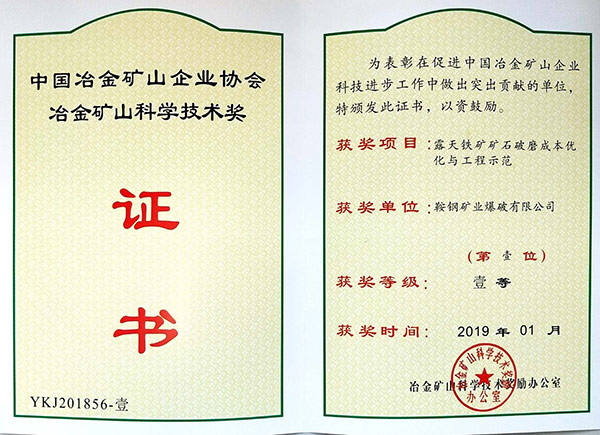 中国冶金矿山企业协会
冶金矿山科学技术奖
证
书
YKJ201856-壹
为表彰在促进中国冶金矿山企业
科技进步工作中做出突出贡献的单位，
特颁发此证书，以资鼓励。
获奖项目：露天铁矿矿石破磨成本优
化与工程示范
获奖单位：鞍钢矿业爆破有限公司
（第 壹 位）
获奖等级： 壹 等
获奖时间： 2019 年 01 月
冶金矿山科学技术奖励办公室
冶金矿山科学技术奖励
办公室